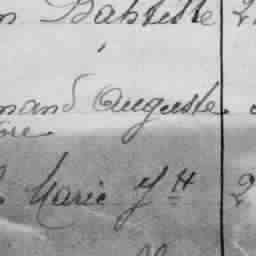 n Baptiste 2
mand Auguste
re
Marie J H 2